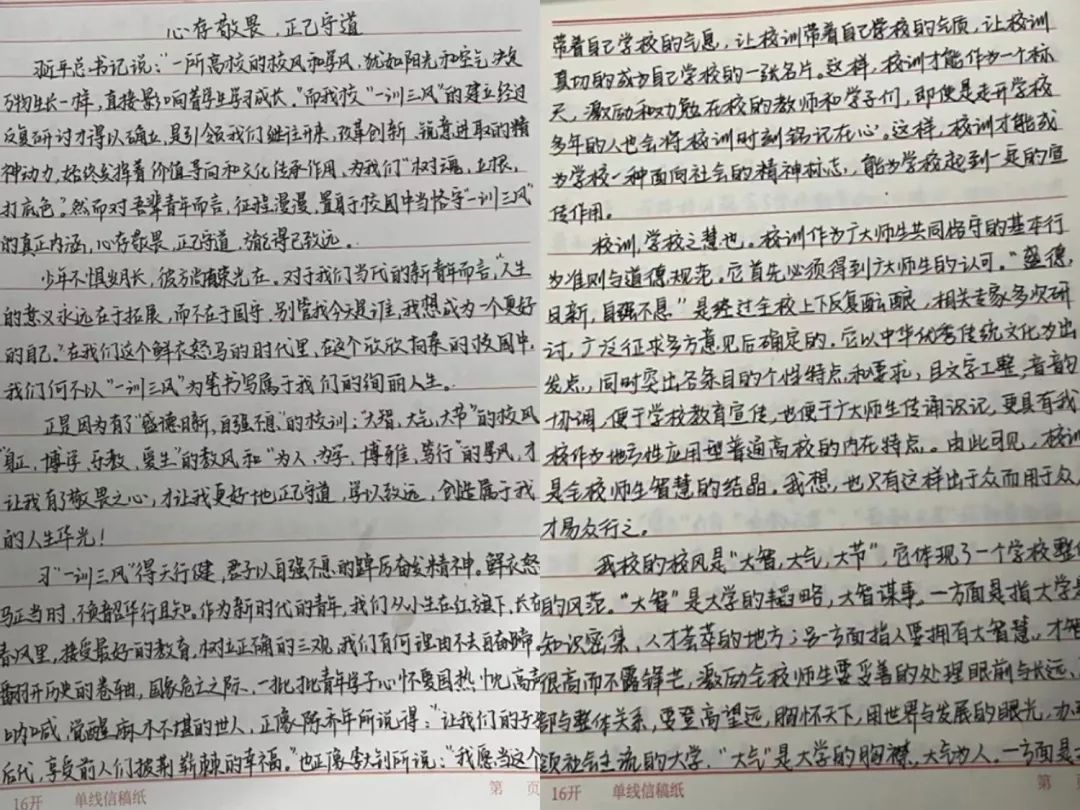 心存敬畏，正己守道
习近平总书记说："一所高校的校风和学风，犹如阳光和空气决定
万物生长一样，直接影响着学生学习成长。"而我校"一训三风"的建立经过
反复研讨才得以确立，是引领我们继往开来，改革创新、锐意进取的精
神动力，始终发挥着价值导向和文化传承作用，为我们"树魂，立根，
打底色。"然而对吾辈青年而言，征程漫漫，置身于校园中当恪守"一训三风"
的真正内涵，心存敬畏，正己守道，旖得己致远。
少年不惧岁月长，彼方尚有荣光在。对于我们当代的新青年而言，"人生
的意义永远在于拓展，而不在于固守，别管我今天是谁，我想成为一个更好
的自己。"在我们这个鲜衣怒马的时代里，在这个欣欣向荣的校园中，
我们何不以"一训三风"为笔书写属于我们的绚丽人生。
正是因为有了"盛德日新，自强不息"的校训；"大智，大气，大节"的校风
"身正，博学，乐教，爱生"的教风和"为人，为学，博雅，笃行"的学风，才
让我有了敬畏之心，才让我更好地正己守道，学以致远，创造属于我
的人生华光！
习"一训三风"得天行健，君子以自强不息的踔厉奋发精神。鲜衣怒
马正当时，不负韶华行且知。作为新时代的青年，我们从小生在红旗下，长在
春风里，接受最好的教育，树立正确的三观，我们有何理由不去自奋蹄。
翻开历史的卷轴，国家危亡之际，一批批青年学子心怀爱国热忱，高声
呐喊，觉醒麻木不堪的世人，正像陈乔年所说得："让我们的子
后代，享受前人们披荆斩棘的幸福。"也正像李大钊所说："我愿当这个
16开 单线信稿纸 第 页
带着自己学校的气息，让校训带着自己学校的气质，让校训
真切的成为自己学校的一张名片。这样，校训才能作为一个标
天，激励和劝勉在校的教师和学子们，即使是走开学校
多年的人也会将校训时刻铭记在心。这样，校训才能成
为学校一种面向社会的精神标志，能为学校起到一定的宣
传作用。
校训，学校之慧也。校训作为广大师生共同恪守的基本行
为准则与道德规范。它首先必须得到广大师生的认可。"盛德，
日新，自强不息"是经过全校上下反复酝酿，相关专家多次研
讨，广泛征求多方意见后确定的。它以中华优秀传统文化为出
发点，同时突出各条目的个性特点和要求，且文字工整，音韵
协调，便于学校教育宣传，也便于广大师生传诵识记，更具有我
校作为地方性应用型普通高校的内在特点。由此可见，校训
是全校师生智慧的结晶。我想，也只有这样出于众而用于众，
才易众行之。
我校的校风是"大智，大气，大节"，它体现了一个学校整体
的风范。"大智"是大学的韬略，大智谋事。一方面是指大学是
知识密集，人才荟萃的地方；另一方面指人要拥有大智慧，才智
很高而不露锋芒，激励全校师生要妥善的处理眼前与长远、
部与整体关系，要登高望远，胸怀天下，用世界与发展的眼光，办
领社会主流的大学。"大气"是大学的胸襟，大气为人。一方面是
16开 单线信稿纸 第